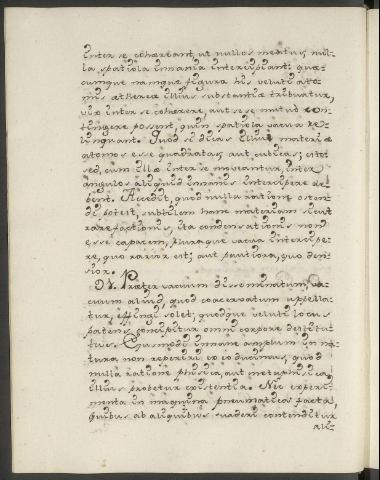 inter se cohæreant, ut nullos meatus, nul-
la spatiola inania intercipiant: quæ-
cunque namque figura his veluti ato-
mis æthereæ illius substantiæ tribuatur,
vix inter se cohærere, aut sese mutuo con-
tingere possent, quin spatiola vacua re-
linquant. Quod si dicas illius materiæ
atomos esse quadratas, aut cubicas; esto:
sed, cum illæ inter se moveantur, inter
angulos aliquid inanis intercipere de-
bent. Accedit, quod nulla ratione osten-
di potest, subtilem hanc materiam sicut
rarefactionis, ita condensationis non
esse capacem, pluraque vacua intercipe-
re, quo rarior est; aut pauciora, quo den-
sior.
IV. Præter vacuum disseminatum, va-
cuum aliud, quod coacervatum appella-
tur, effingi solet; quodque veluti locus
patens concipitur omni corpore destitu-
tus. Ejusmodi inane amplum in na-
tura non reperiri ex eo ducimus, quod
nulla ratione physica, aut metaphysica
illius probetur existentia. Nec experi-
menta in machina pneumatica facta,
quibus ab aliquibus suaderi contenditur
ali-